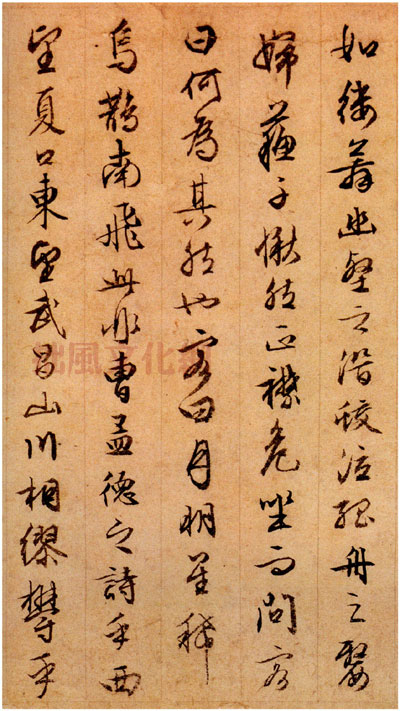 如縷舞幽壑之潛蛟泣孤舟之嫠
婦蘇子愀然正襟危坐而問客
曰何為其然也客曰月明星稀
烏鵲南飛此非曹孟德之詩乎西
望夏口東望武昌山川相繆鬱乎
拙風文化網